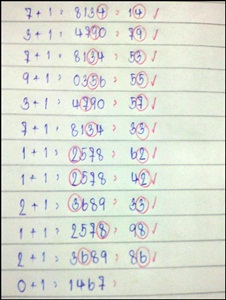 7 + 1 = 8134 = 14 ✓
3 + 1 = 4790 = 79 ✓
7 + 1 = 8134 = 53 ✓
9 + 1 = 0356 = 55 ✓
3 + 1 = 4790 = 57 ✓
7 + 1 = 8134 = 33 ✓
1 + 1 = 2578 = 62 ✓
1 + 1 = 2578 = 42 ✓
2 + 1 = 3689 = 33 ✓
1 + 1 = 2578 = 98 ✓
2 + 1 = 3689 = 86 ✓
0 + 1 = 1467 =